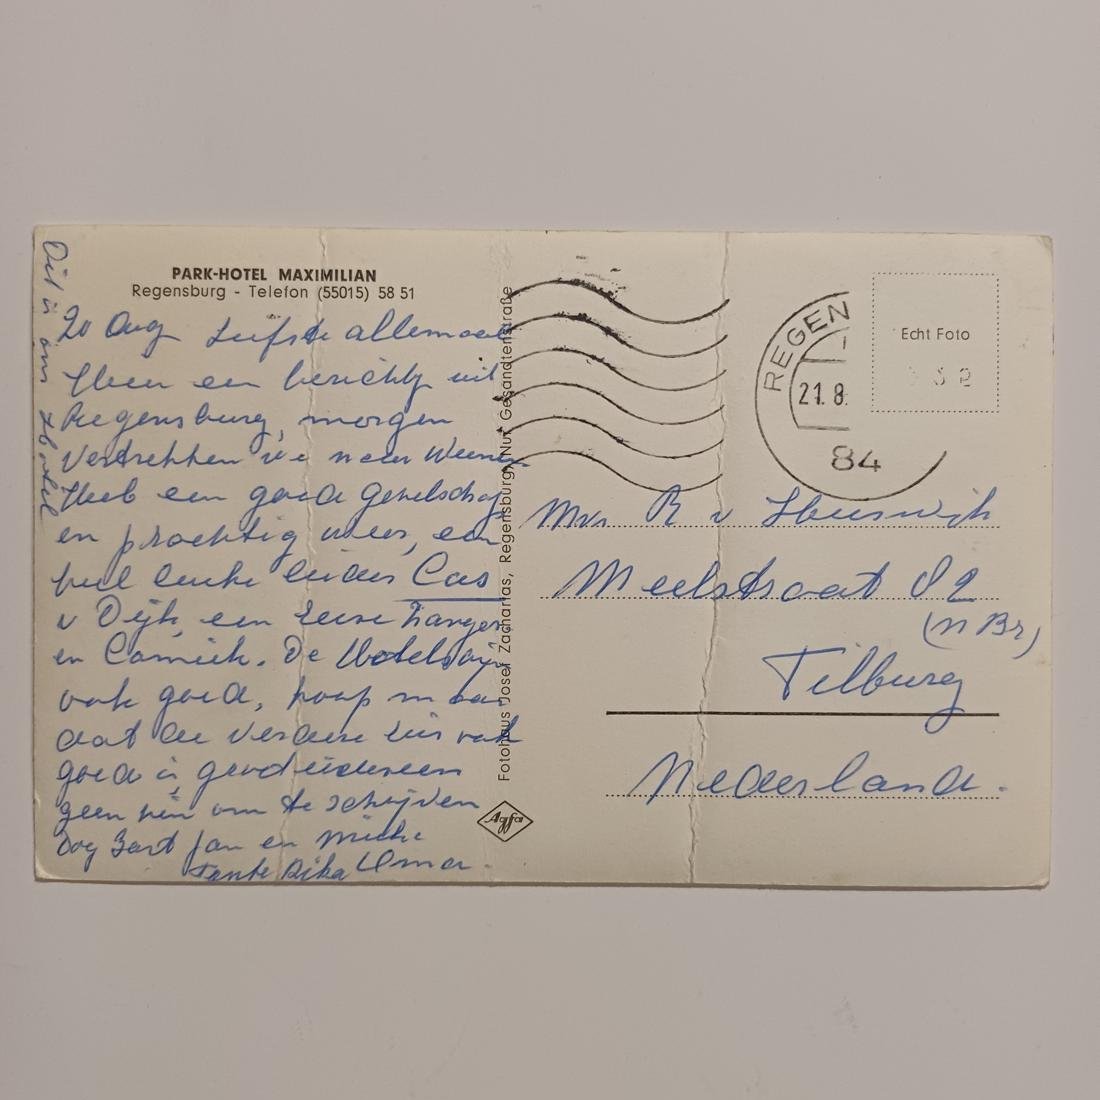 PARK-HOTEL MAXIMILIAN
Regensburg - Telefon (55015) 58 51
Dit is ons Hotel
20 Aug Liefste allemaal
Even een berichtje uit
Regensburg, morgen
vertrekken we naar Weenen
Heb een goed gezelschap
en prachtig weer, een
heel leuke leider Cas
v Dijk, een
en Comiek. De Hotels zijn
ook goed, hoop
dat de verdere reis ook
goed is,
geen om te schrijven
Dag Bart Jan en
Tante Rika Oma.
Fotohaus Josef Zacharias, Regensburg, Nur Gesandtenstraße
Agfa
REGEN
21.8.
84
Echt Foto
Mvr R v
82
(N Br)
Tilburg
Nederland.